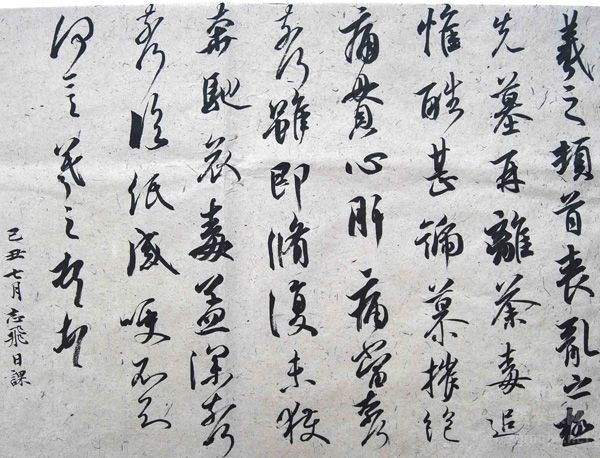 羲之頓首喪亂之極
先墓再離荼毒追
惟酷甚號慕摧絕
痛貫心肝痛當奈何
奈何雖即脩復未獲
奔馳哀毒益深奈何
奈何臨紙感哽不知
何言羲之頓首頓首
己丑七月志飛日課